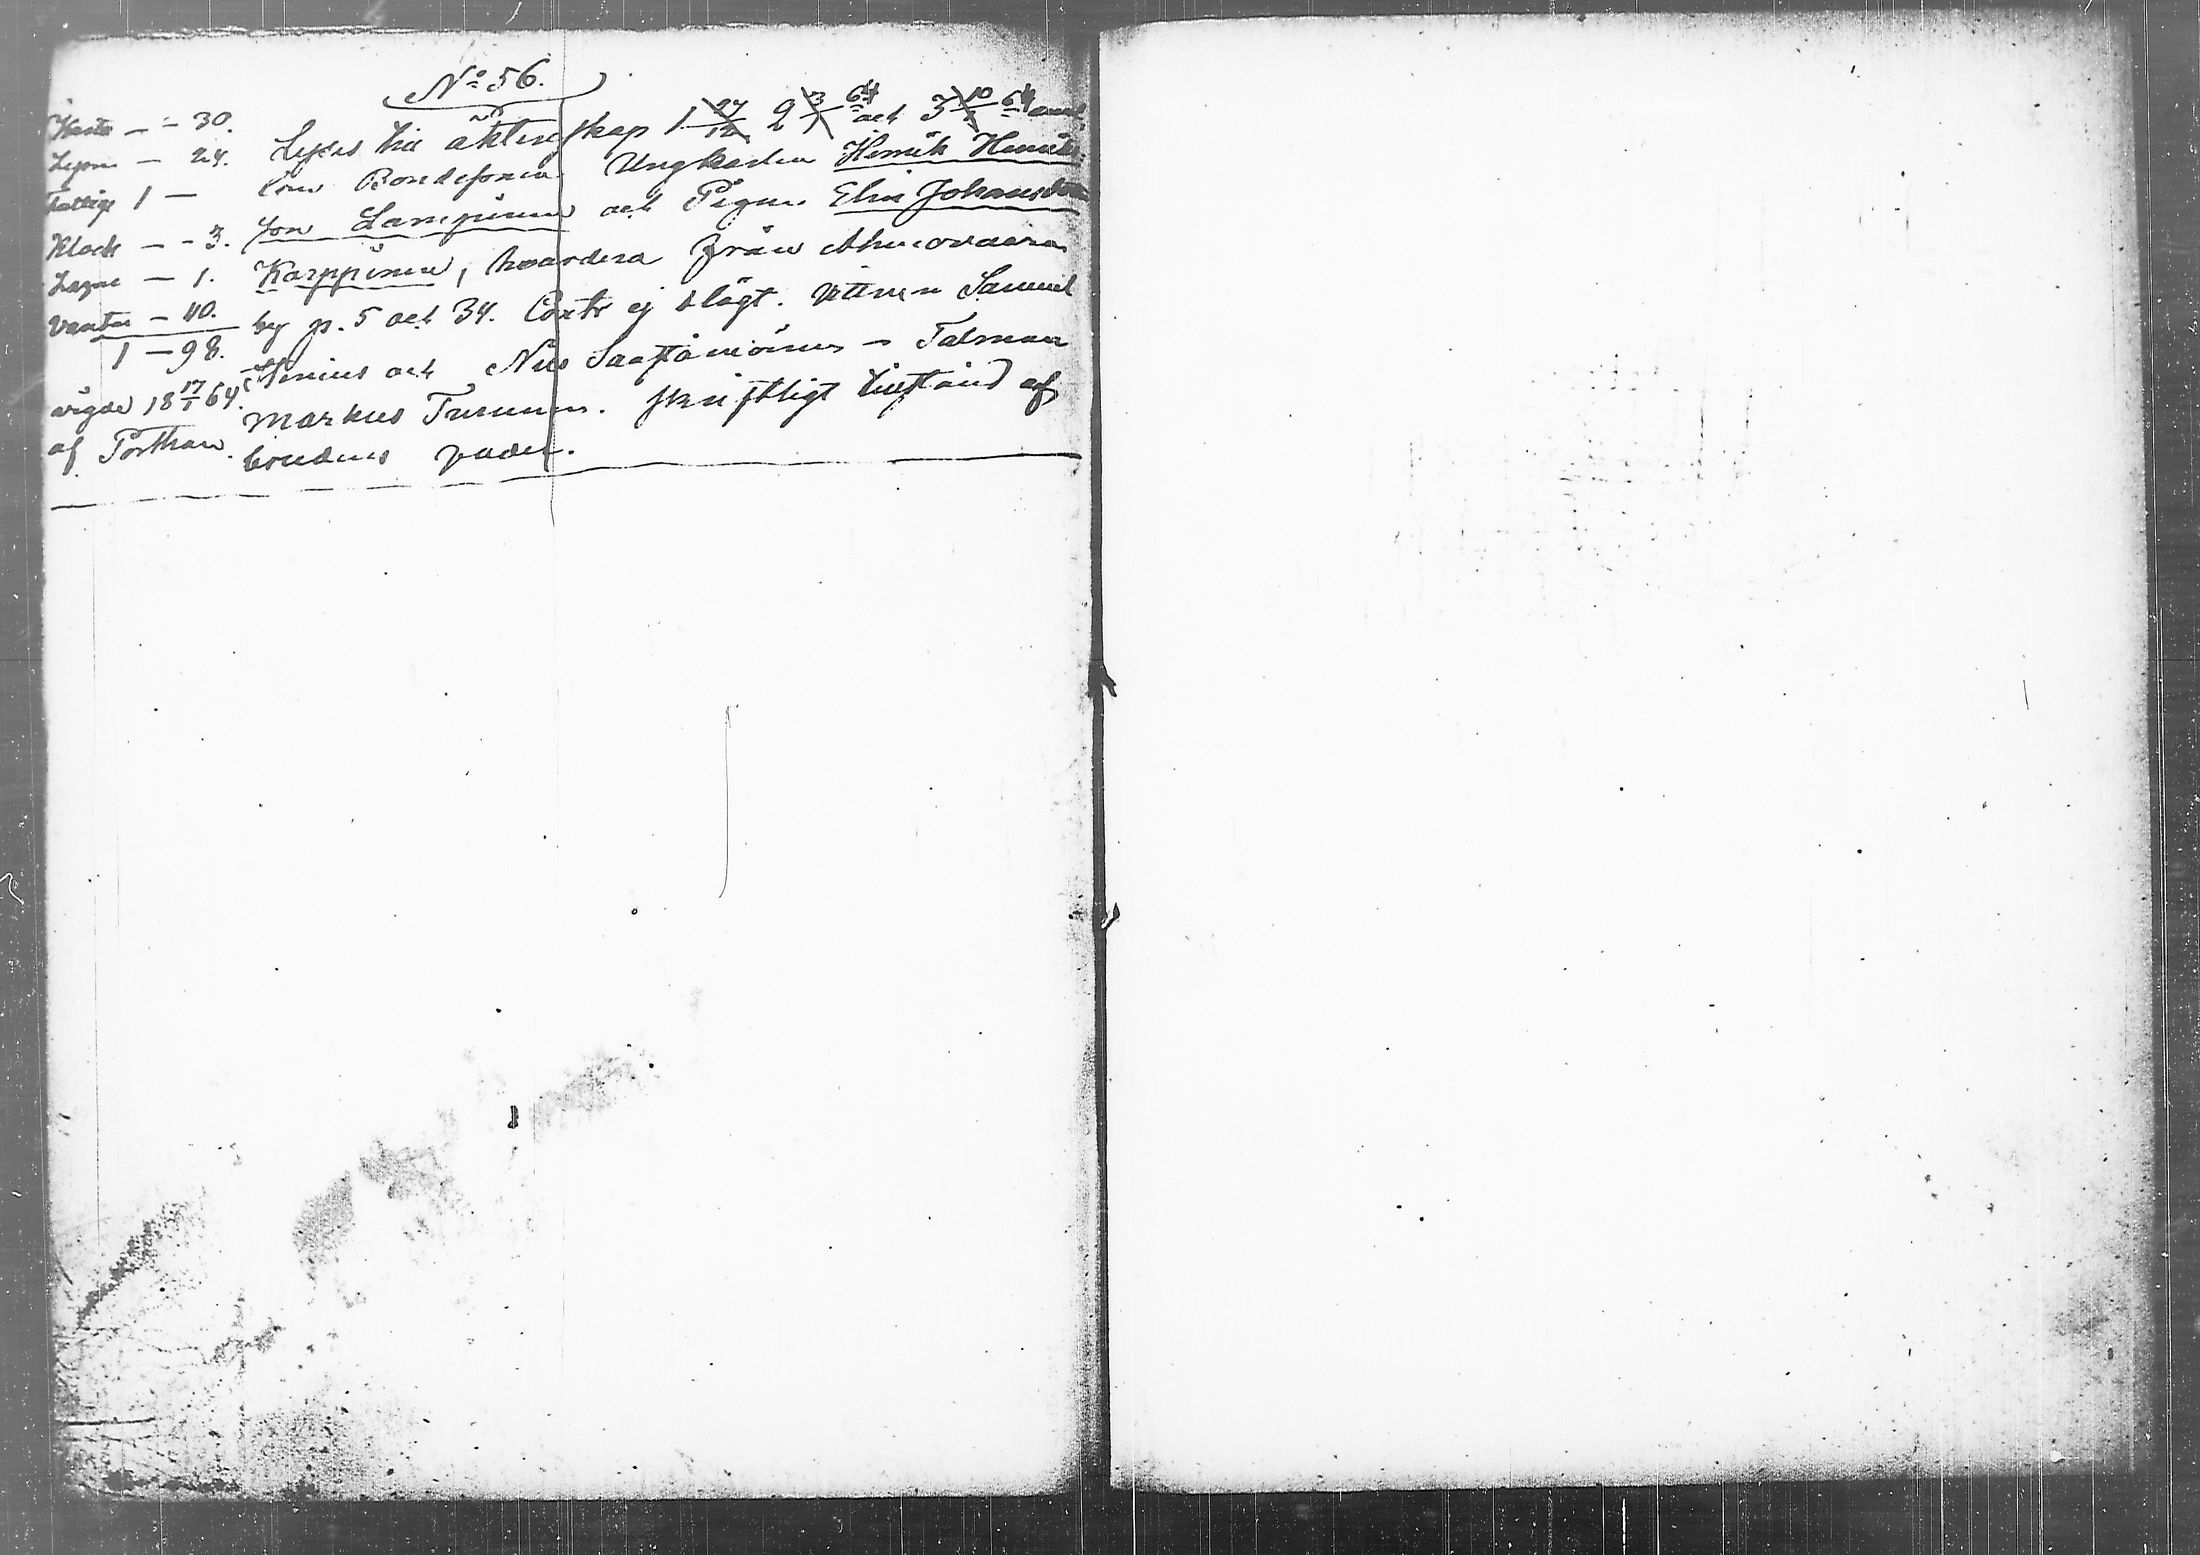 No 56.
Karta — - 30.
Lysn — 24.
Fattige 1 —
Klock — - 3.
Lagm — 1.
Vantar — 40.
1 — 98.
vigde 18 17/1 64.
af Porthan.
Lyses till äktenskap 1 27/12 2 3/1 64 och 3 10/1 64 emel
lan Bondesonen Ungkarlen Henrik Henriks
son Lampinen och Pigan Elin Johansdotter
Karppinen, hvardera från Ahmovaara
by p. 5 och 34. Contr ej slägt. Vittnen Samuel
och Nils Saastamoinen — Talman
Markus Turunen. skriftligt tillstånd af
brudens fader.